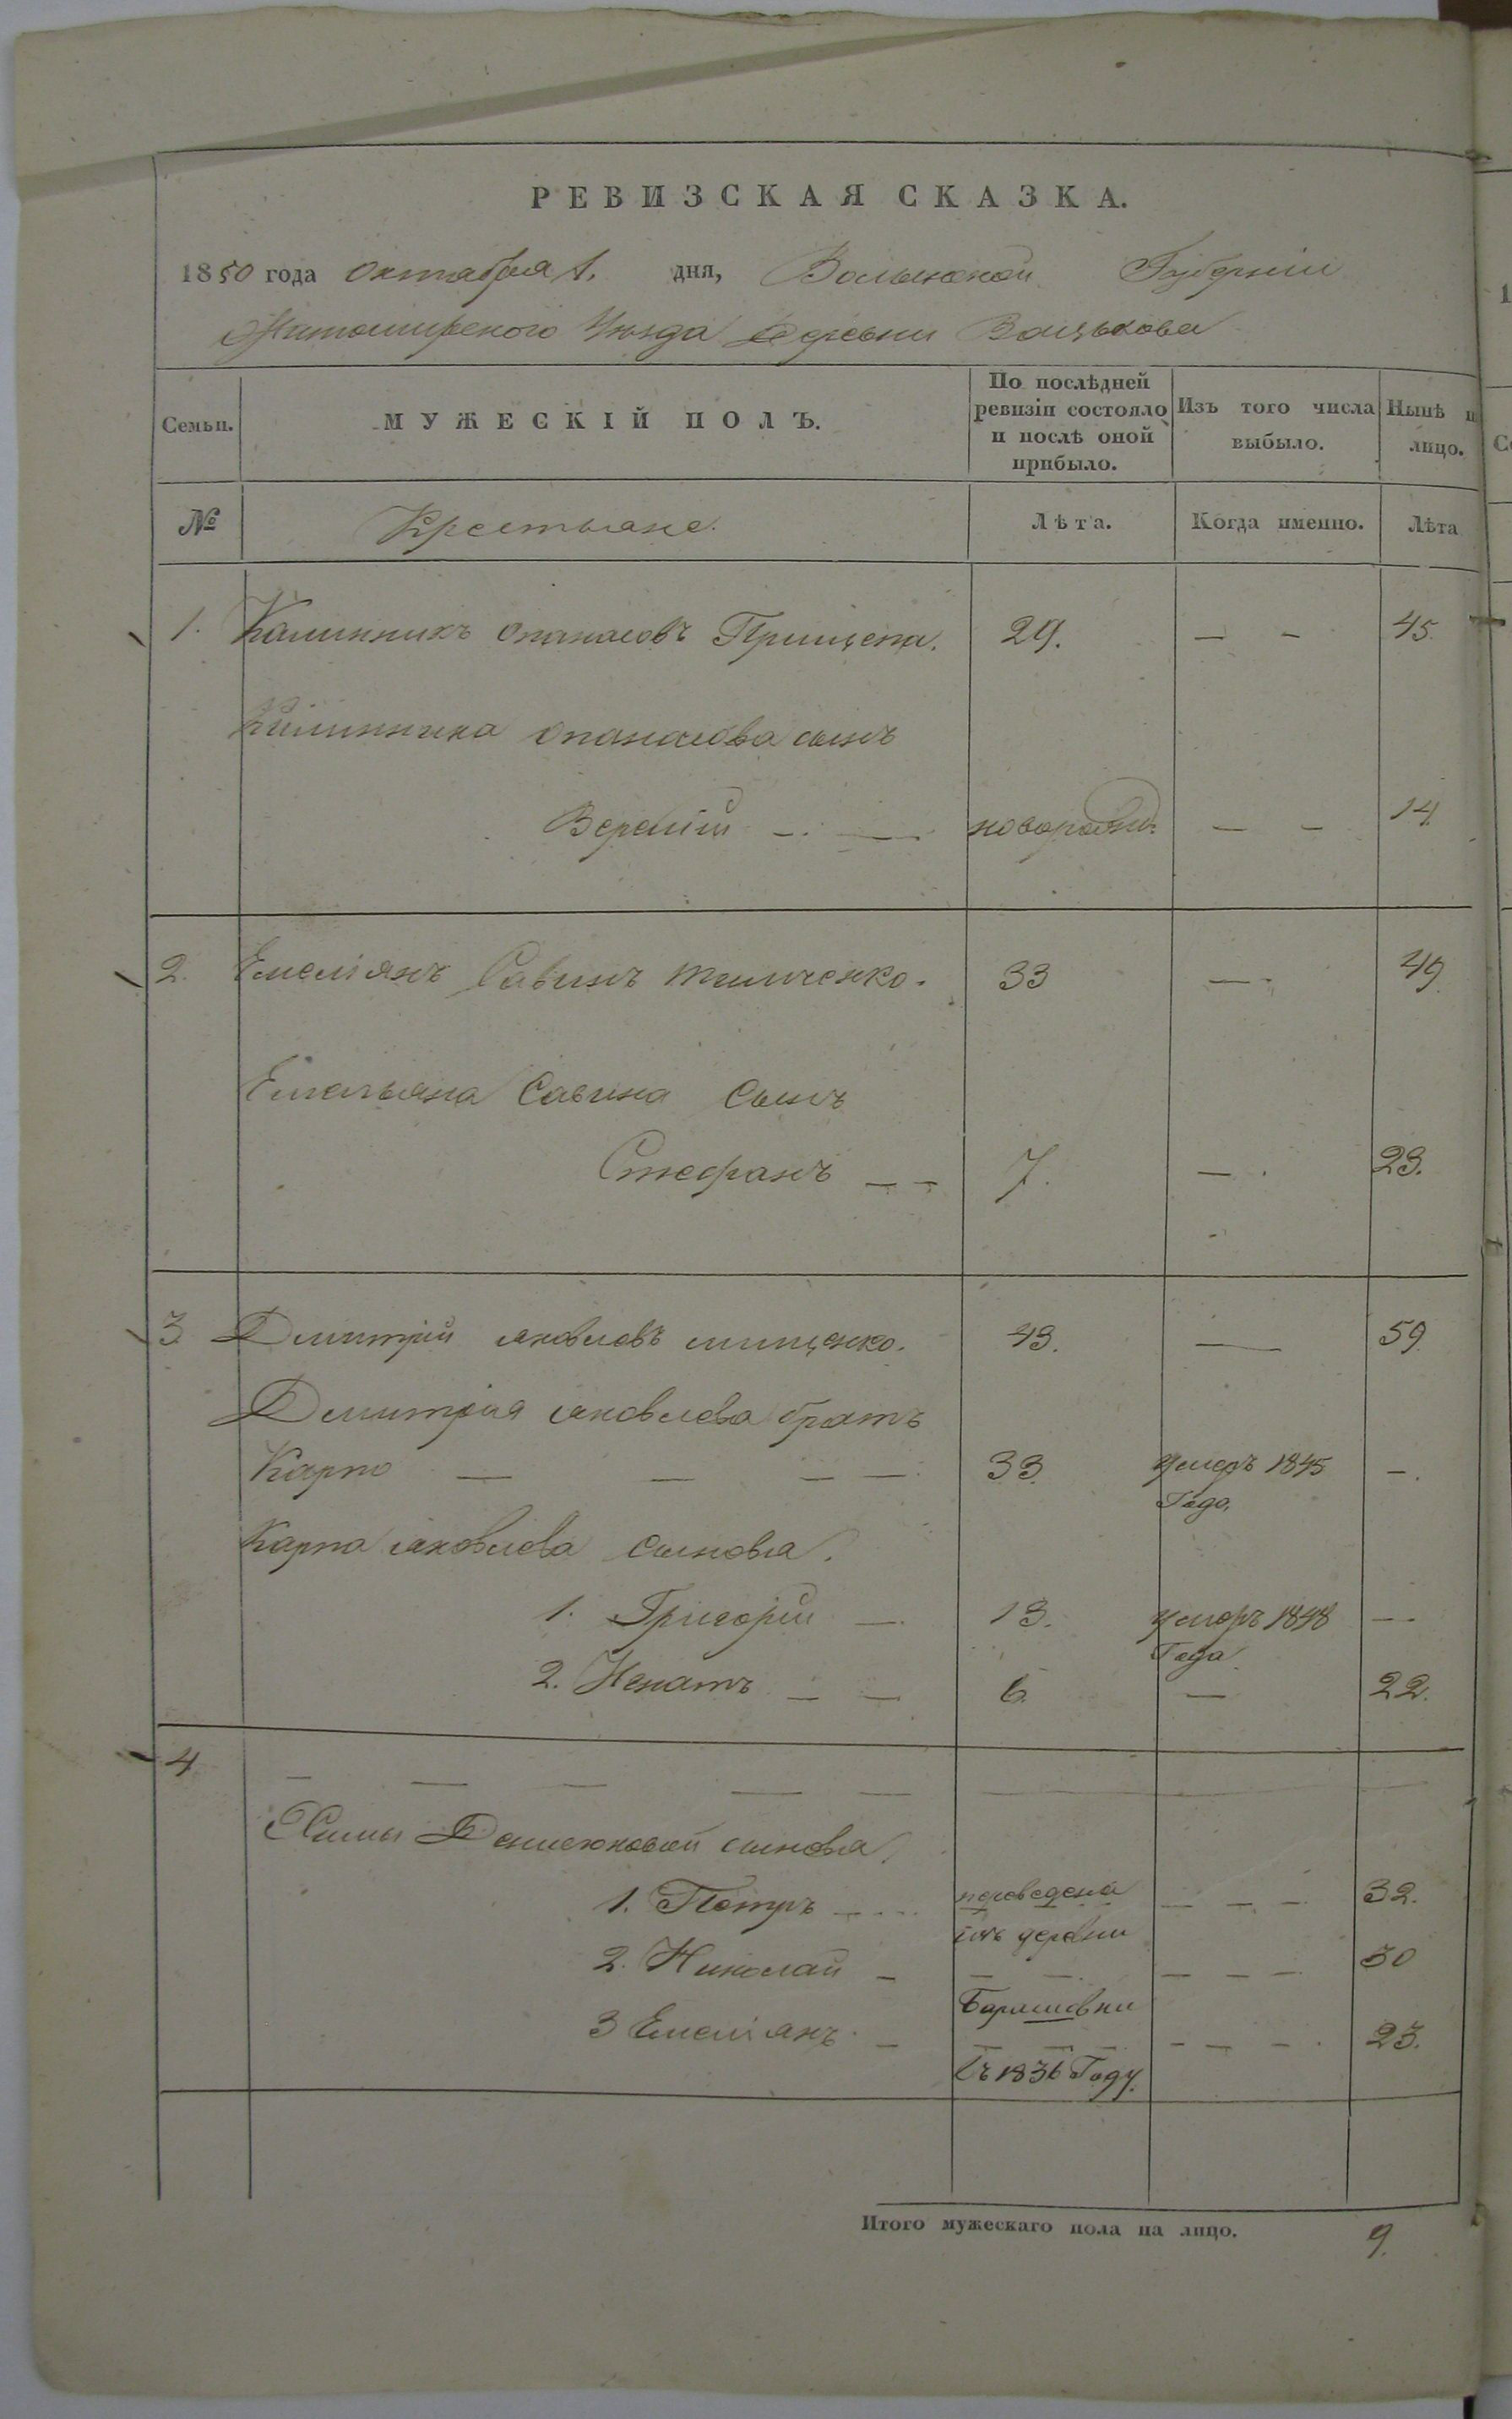 РЕВИЗСКАЯ СКАЗКА.
1850 года октабря 1. дня, Волынской Губернїи
Житомирского Уѣзда деревни Вацькова
Семьи. МУЖЕСКІЙ ПОЛЪ. По послѣдней ревизіи состояло и послѣ оной прибыло. Изъ того числа выбыло. Нынѣ н лицо.
№ Крестьяне. Лѣта. Когда именно. Лѣта
1. Калинникъ Опанасовъ Прищепа. 29. — — 45.
Калинника Опанасова сынъ
новорожд. — — 14.
2. Емелїянъ Савинъ Тимченко. 33 — 49
Емельяна Савина Сынъ
Стефанъ — — 7. — 23.
3 Дмитрїй яковлевъ мищенко. 43. — 59
Дмитрїя яковлева братъ
Карпо — — — — 33. умеръ 1845 —.
Года,
Карпа яковлева сыновья.
1. Григорїй — 13. умеръ 1848 —
Года
2. Игнатъ — — 6. — 22.
4 — — — — —
Химы сыновья.
1. Петръ — переведена — — — 32.
изъ деревни
2. Николай — — — — 30
3 Емелїянъ — — — — 23.
въ 1836 Году.
Итого мужескаго пола на лицо. 9.